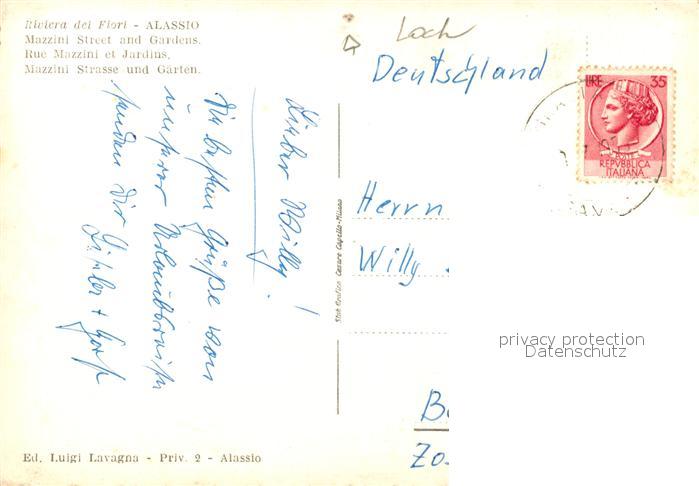 Riviera dei Fiori - ALASSIO
Mazzini Street and Gardens.
Rue Mazzini et Jardins.
Mazzini Strasse und Gärten.
Lieber Willy!
Die besten Grüße von
unserer Urlaubsreise
senden Dir
Ed. Luigi Lavagna - Priv. 2 - Alassio
Stab. Grafico Cesare Capello-Milano
Loch
Deutschland
LIRE 35
POSTE
REPVBBLICA
ITALIANA
Herrn
Willy
privacy protection
Datenschutz
B
Zo